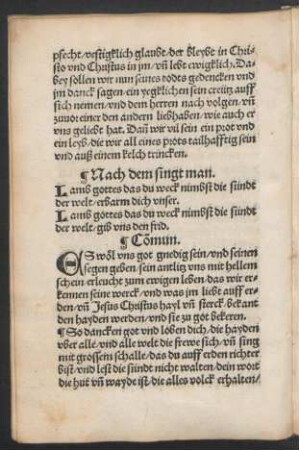 psecht/vestigklich glaubt/der bleybt in Chri-
sto vnd Christus in jm/vn̄ lebt ewigklich. Da-
bey sollen wir nun seines todts gedencken vnd
jm danck sagen/ein yegklichen sein creütz auff
sich nemen/vnd dem herren nach volgen/vn̄
zuuor einer den andern liebhaben/wie auch er
vns geliebt hat. Dan̄ wir vil sein ein prot vnd
ein leyb/die wir all eines prots tailhafftig sein
vnd auß einem kelch trincken.
¶Nach dem singt man.
Lamb gottes das du weck nimbst die sündt
der welt/erbarm dich vnser.
Lamb gottes das du weck nimbst die sündt
der welt/gib vns den frid.
¶Com̄un.
ES wöl vns got gnedig sein/vnd seinen
segen geben/sein antlitz vns mit hellem
schein erleucht zum ewigen leben/das wir er-
kennen seine werck/vnd was jm liebt auff er-
den/vn̄ Jesus Christus hayl vn̄ sterck/bekant
den hayden werden/vnd sie zu got bekeren.
¶So dancken got vnd loben dich/die hayden
vber alle/vnd alle welt die frewe sich/vn̄ sing
mit grossem schalle/das du auff erden richter
bist/vnd lest die sündt nicht walten/dein wort
die hut vn̄ waydt ist/die alles volck erhalten/